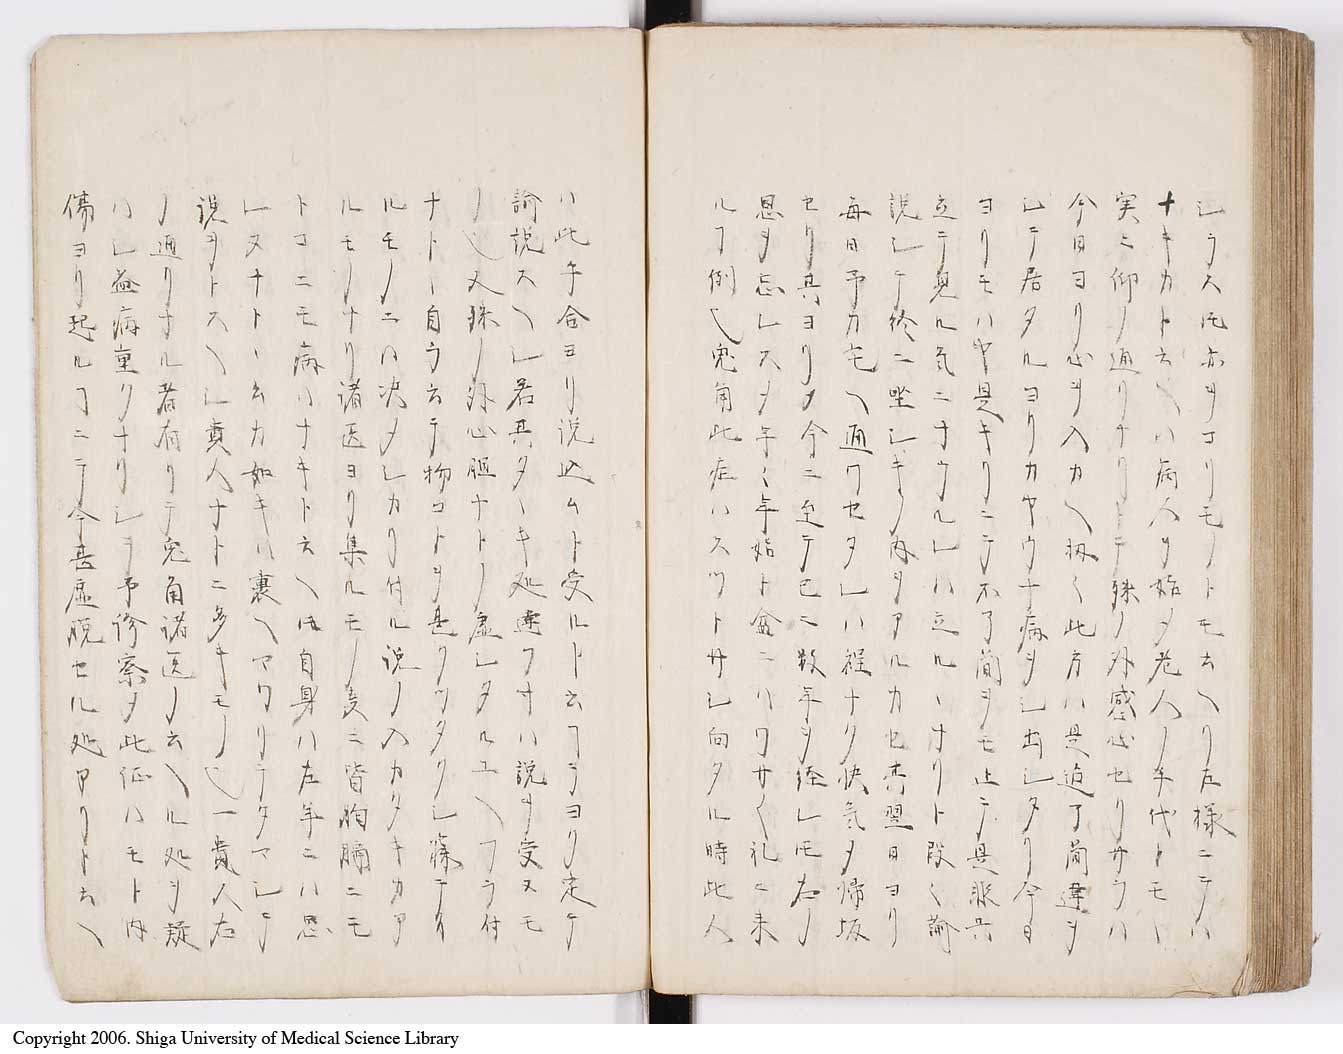 シラス圧亦ヲコリモノトモ云ヘリ左様ニテハ
ナキカト云ヘハ病人ヲ始メ老人ノ年代トモニ
実ニ仰ノ通リナリトテ殊ノ外感心セリサラハ
今日ヨリ心ヲ入カヘ扨〱此方ハ是迠了簡違ヲ
シテ居タルヨリカヤウナ病ヲシ出シタリ今日
ヨリモハヤ是キリニテ不了簡ヲモ止テ是非共
立テ見ル気ニナウルレハ立ルヽナリト段〱諭
説シテ終ニ坐シキノ内ヲアルカセ其翌日ヨリ
毎日予カ宅ヘ通ワセタレハ程ナク快気メ帰坂
セリ其ヨリメ今ニ至テ已ニ数年ヲ経レ𪜈右ノ
恩ヲ忘レスメ年〱年始ト盆ニハワサ〱礼ニ来
ルヿ例也兎角此症ハスツトサシ向タル時此人
ハ此手合ヨリ説込ムト受ルト云フヿヲヨク定テ
諭説スヘシ若其タヽキ処違フ寸ハ説ヲ受ヌモ
ノ也又殊ノ外心胆ナトノ虚シタルユヘワラ付
ナトヽ自ラ云テ物コトヲ甚クツタクシ篠テリ
ルモノニハ决メシカリ付ル説ノ入カタキカア
ルモノナリ諸医ヨリ集ルモノ多ニ皆胸膈ニモ
トコニモ病ハナキト云ヘ𪜈自身ハ左年ニハ思
レヌナトヽ云カ如キハ裏ヘマワリテタマシテ
説ヲトスヘシ貴人ナトニ多キモノ也一貴人右
ノ通リナル者有リテ兎角諸医ノ云ヘル処ヲ疑
ハレ益病重クナリシヲ予診察メ此征ハモト内
傷ヨリ起ルヿニテ今甚虚脱セル処アリト云ヘ
Copyright 2006. Shiga University of Medical Science Library